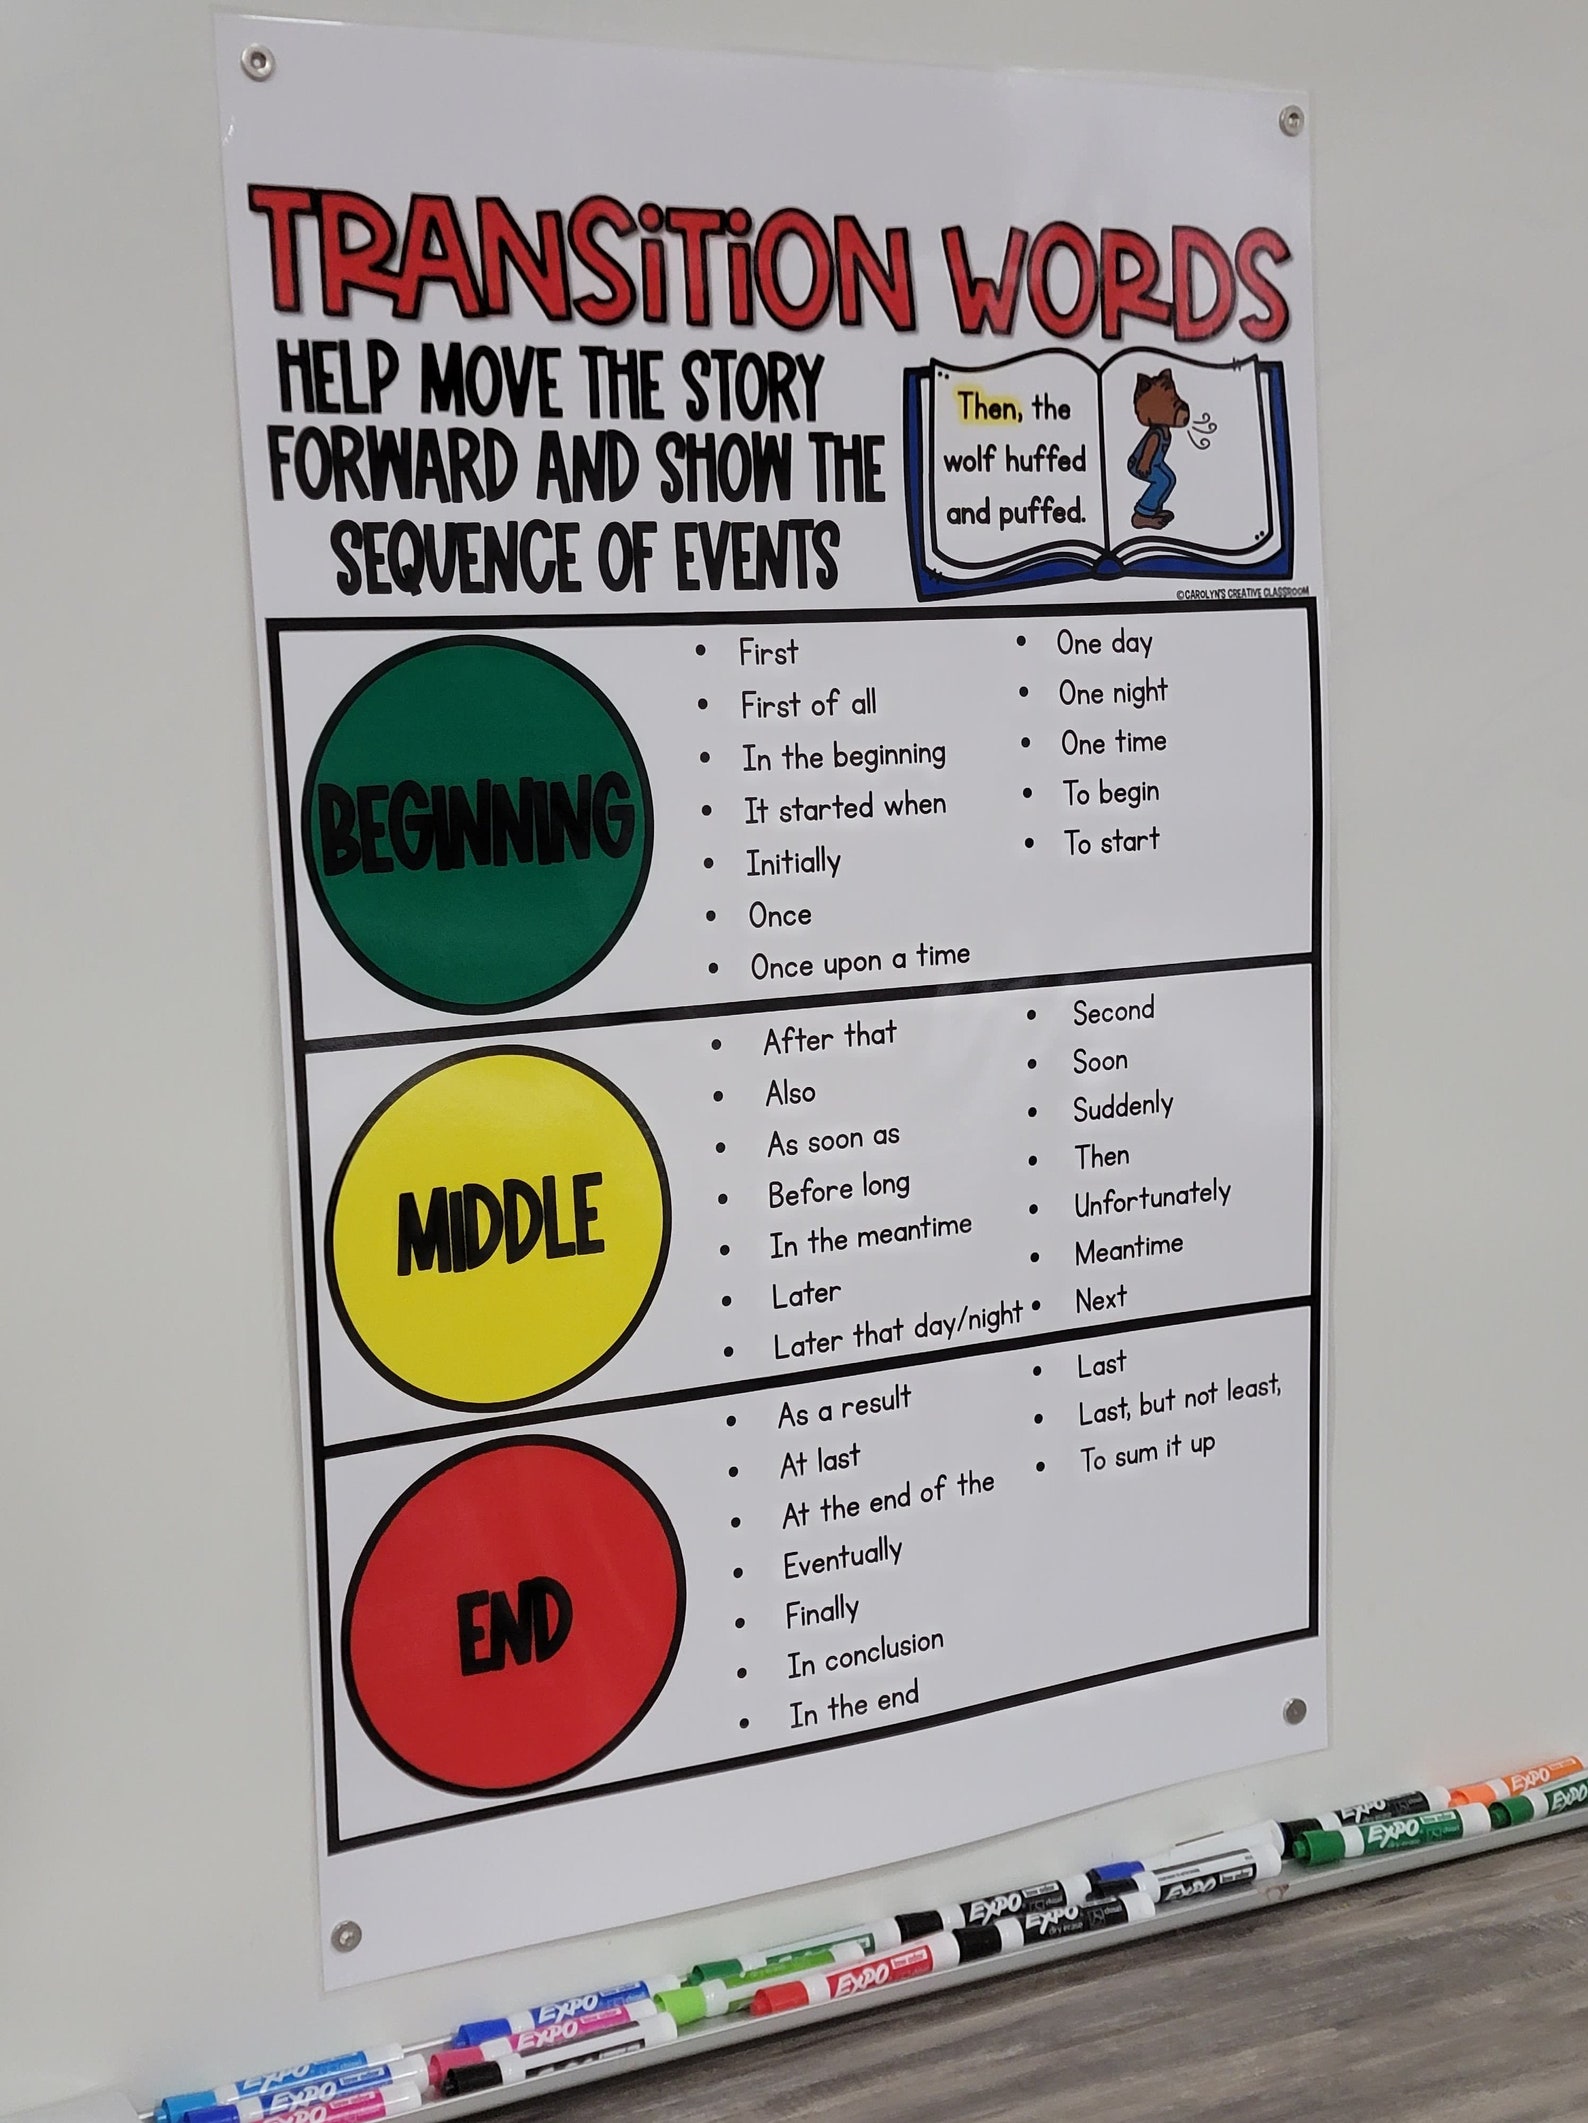 TRANSiTiON WORDS
HELP MOVE THE STORY
FORWARD AND SHOW THE
SEQUENCE OF EVENTS
Then, the
wolf huffed
and puffed.
©CAROLYN'S CREATIVE CLASSROOM
BEGINNING
• First
• First of all
• In the beginning
• It started when
• Initially
• Once
• Once upon a time
• One day
• One night
• One time
• To begin
• To start
MIDDLE
• After that
• Also
• As soon as
• Before long
• In the meantime
• Later
• Later that day/night
• Second
• Soon
• Suddenly
• Then
• Unfortunately
• Meantime
• Next
END
• As a result
• At last
• At the end of the
• Eventually
• Finally
• In conclusion
• In the end
• Last
• Last, but not least,
• To sum it up
EXPO
EXPO
EXPO
EXPO
EXPO
EXPO
EXPO
EXPO
EXPO
EXPO
EXPO
EXPO
EXPO